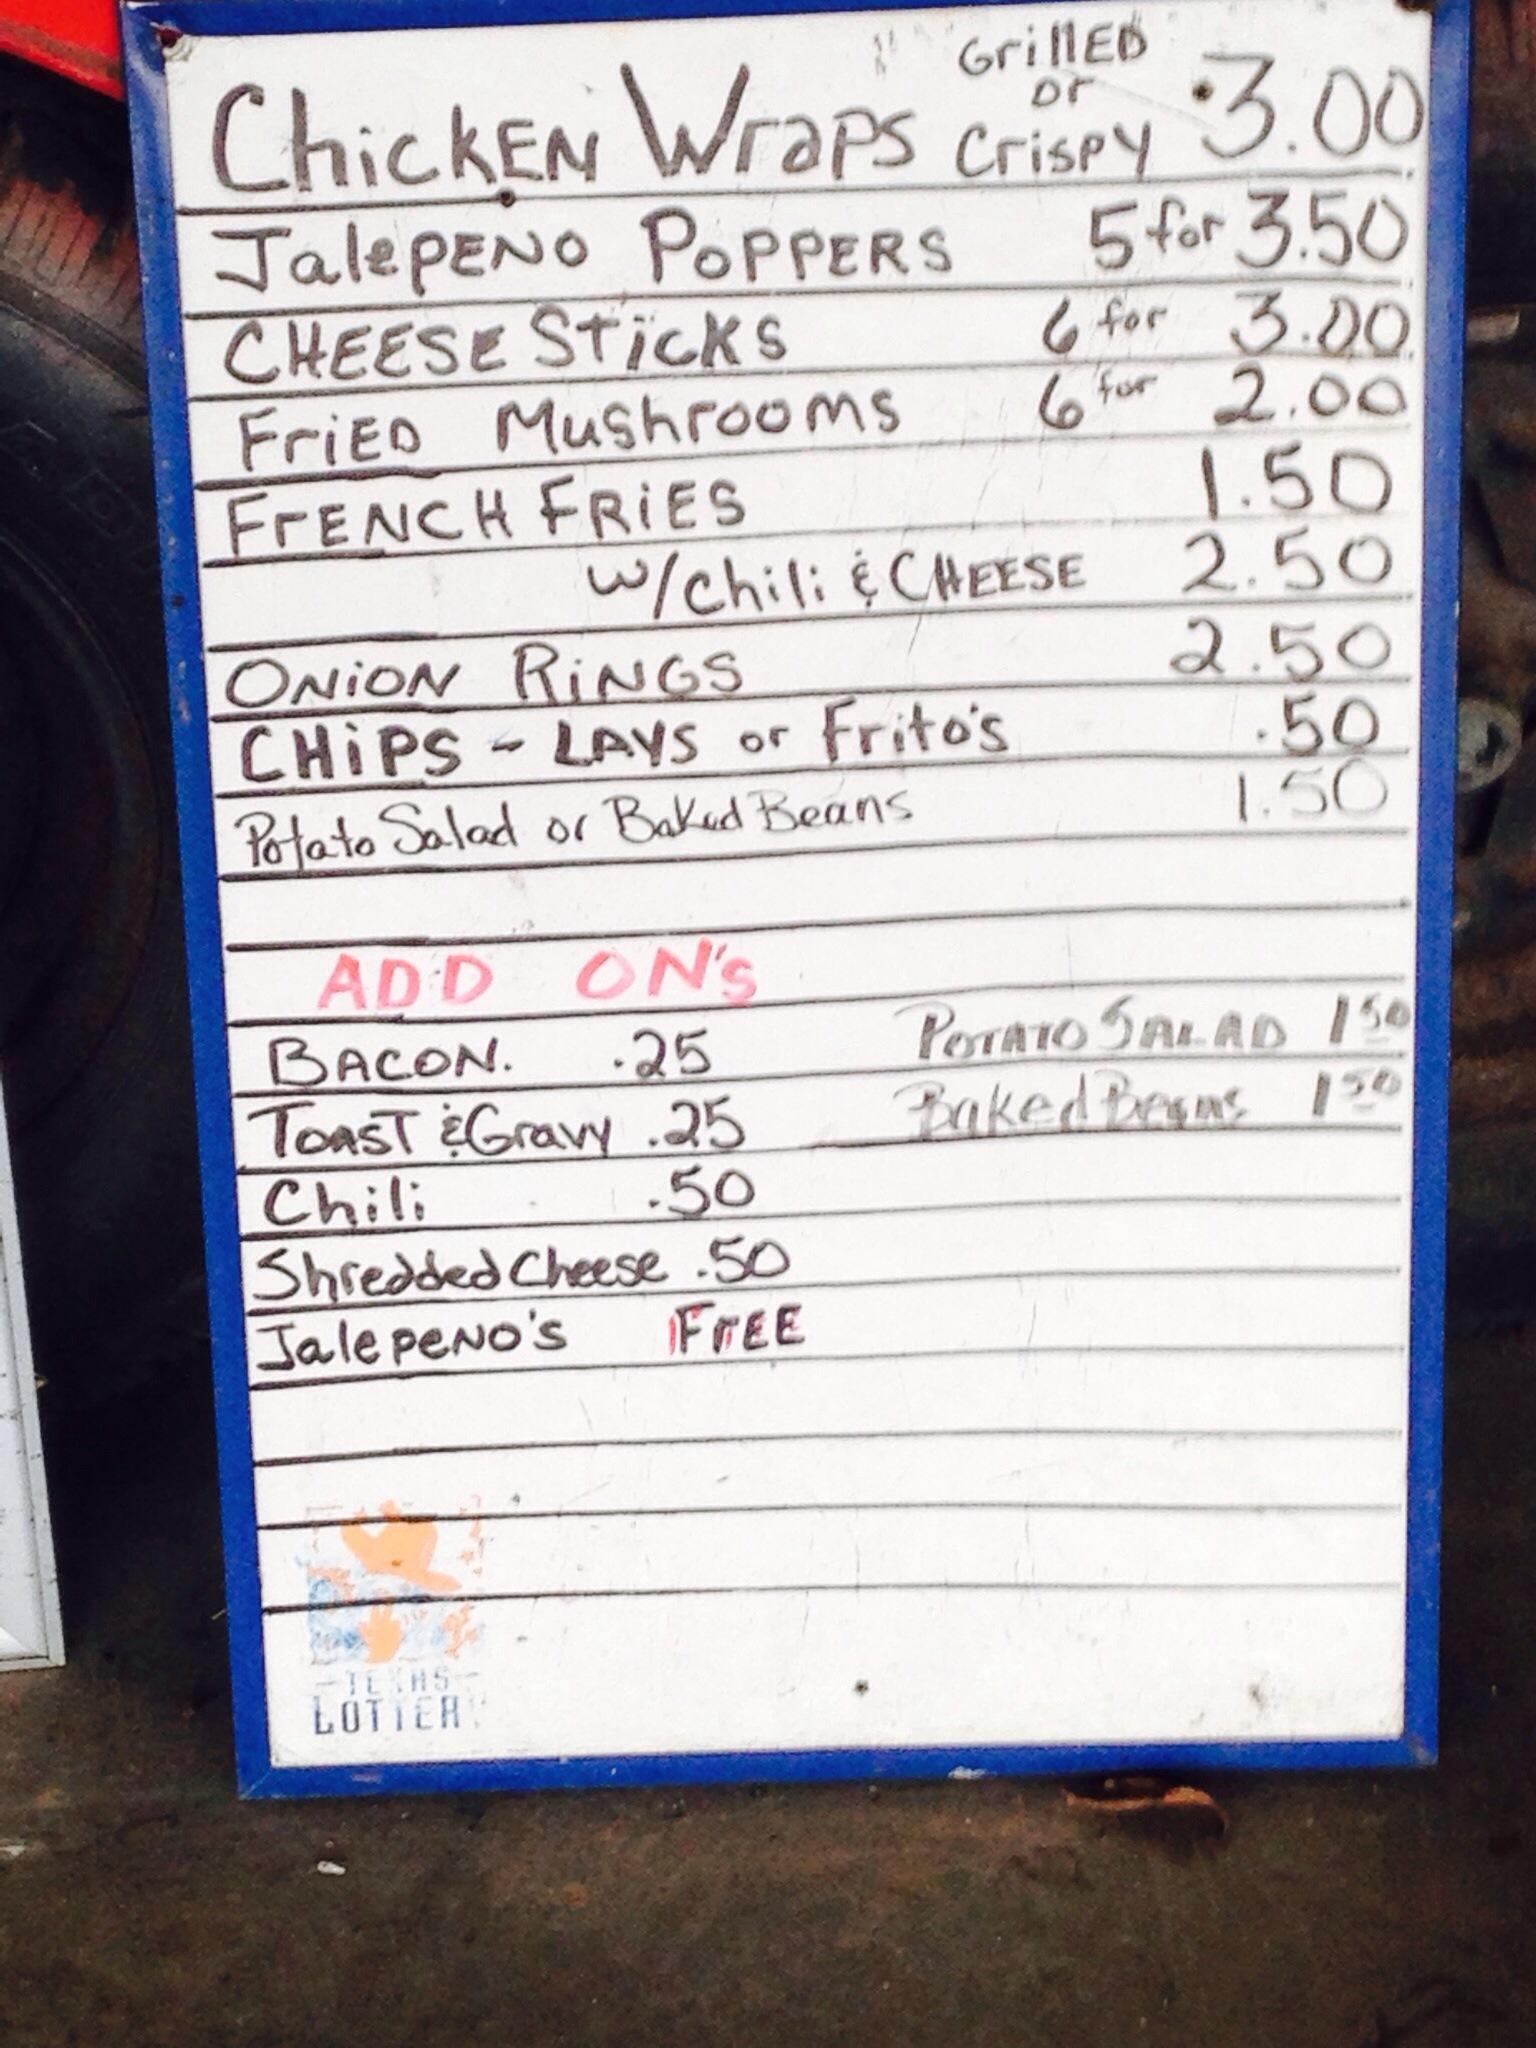 Chicken Wraps Grilled or Crispy 3.00
Jalepeno Poppers 5 for 3.50
Cheese Sticks 6 for 3.00
Fried Mushrooms 6 for 2.00
French Fries 1.50
w/Chili & Cheese 2.50
Onion Rings 2.50
Chips - Lays or Frito's .50
Potato Salad or Baked Beans 1.50
ADD ON's
Bacon. .25 Potato Salad 1 50
Toast & Gravy .25 Baked Beans 1 50
Chili .50
Shredded Cheese .50
Jalepeno's Free
TEXAS
LOTTERY